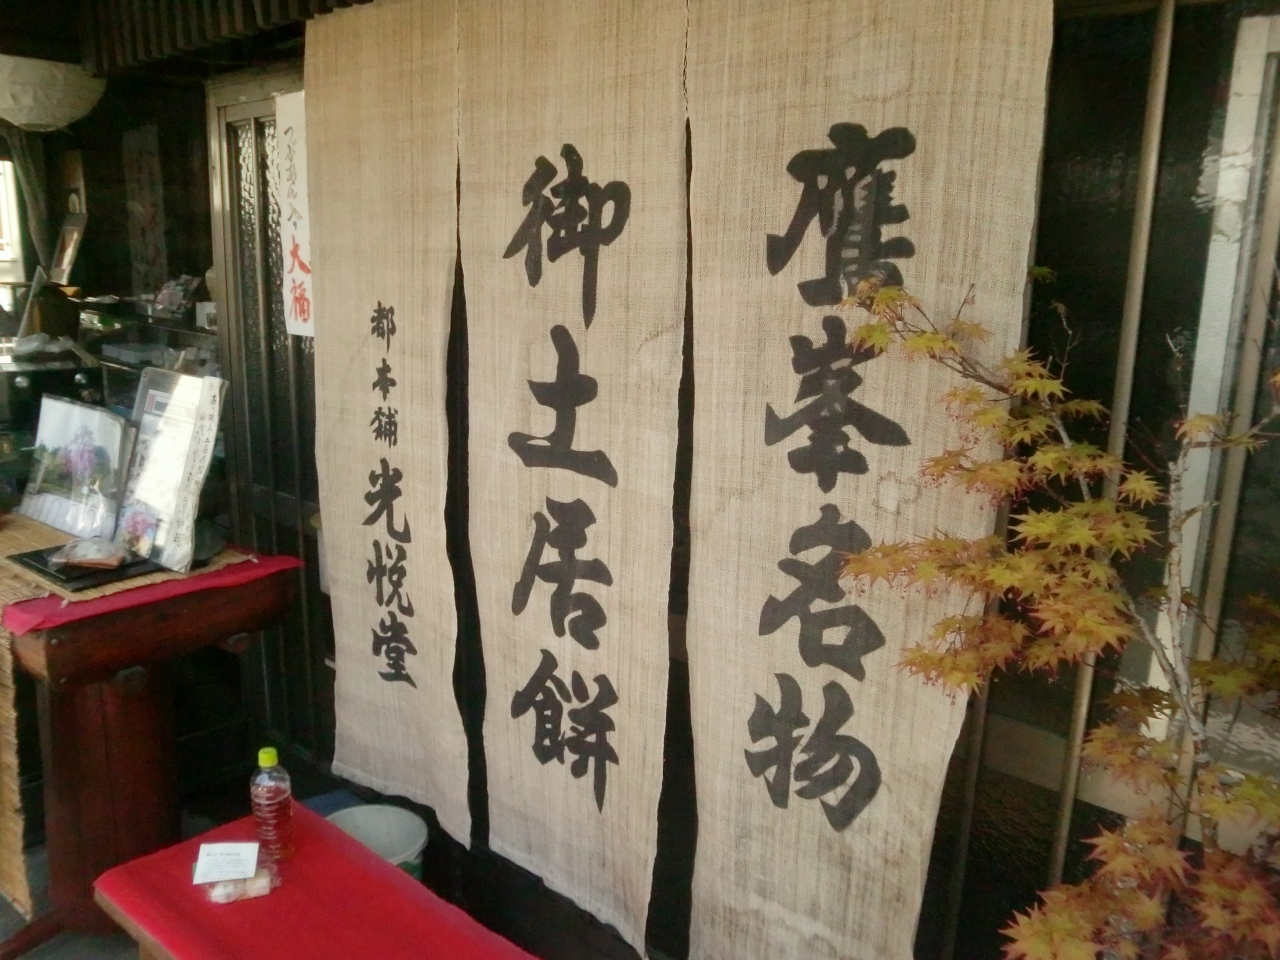 鷹峯名物
御土居餅
都本舗 光悦堂
つぶあん入り
大福